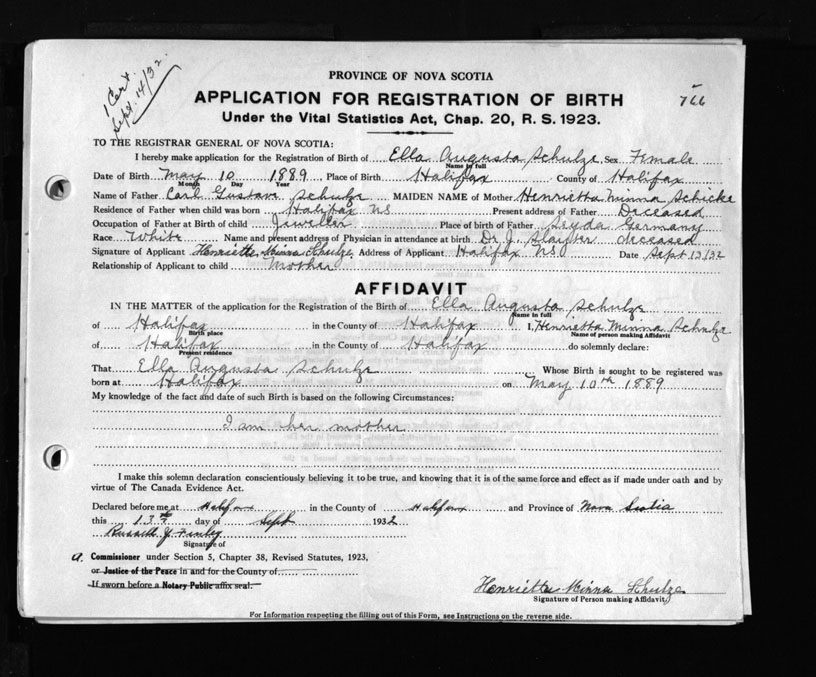 1 Cert.
Sept. 14/32.
PROVINCE OF NOVA SCOTIA
766
APPLICATION FOR REGISTRATION OF BIRTH
Under the Vital Statistics Act, Chap. 20, R. S. 1923.
TO THE REGISTRAR GENERAL OF NOVA SCOTIA:
I hereby make application for the Registration of Birth of Ella Augusta Schulze Sex Female
Name in full
Date of Birth May 10 1889 Place of Birth Halifax County of Halifax
Month Day Year
Name of Father Carl Gustav Schulze MAIDEN NAME of Mother Henrietta Minna Schicke
Residence of Father when child was born Halifax NS Present address of Father Deceased
Occupation of Father at Birth of child Jeweller Place of birth of Father Seyda Germany
Race White Name and present address of Physician in attendance at birth Dr. J. Slayter deceased
Signature of Applicant Henrietta Minna Schulze Address of Applicant Halifax NS Date Sept 13/32
Relationship of Applicant to child Mother
AFFIDAVIT
IN THE MATTER of the application for the Registration of the Birth of Ella Augusta Schulze
Name in full
of Halifax in the County of Halifax I, Henrietta Minna Schulze
Birth place Name of person making Affidavit
of Halifax in the County of Halifax do solemnly declare:
Present residence
That Ella Augusta Schulze Whose Birth is sought to be registered was
born at Halifax on May 10th 1889
My knowledge of the fact and date of such Birth is based on the following Circumstances:
I am her mother
I make this solemn declaration conscientiously believing it to be true, and knowing that it is of the same force and effect as if made under oath and by
virtue of The Canada Evidence Act.
Declared before me at Halifax in the County of Halifax and Province of Nova Scotia
this 13th day of Sept 1932
Russell J Finley
Signature of
A Commissioner under Section 5, Chapter 38, Revised Statutes, 1923,
or Justice of the Peace in and for the County of
If sworn before a Notary Public affix seal.
Henrietta Minna Schulze
Signature of Person making Affidavit
For Information respecting the filling out of this Form, see Instructions on the reverse side.